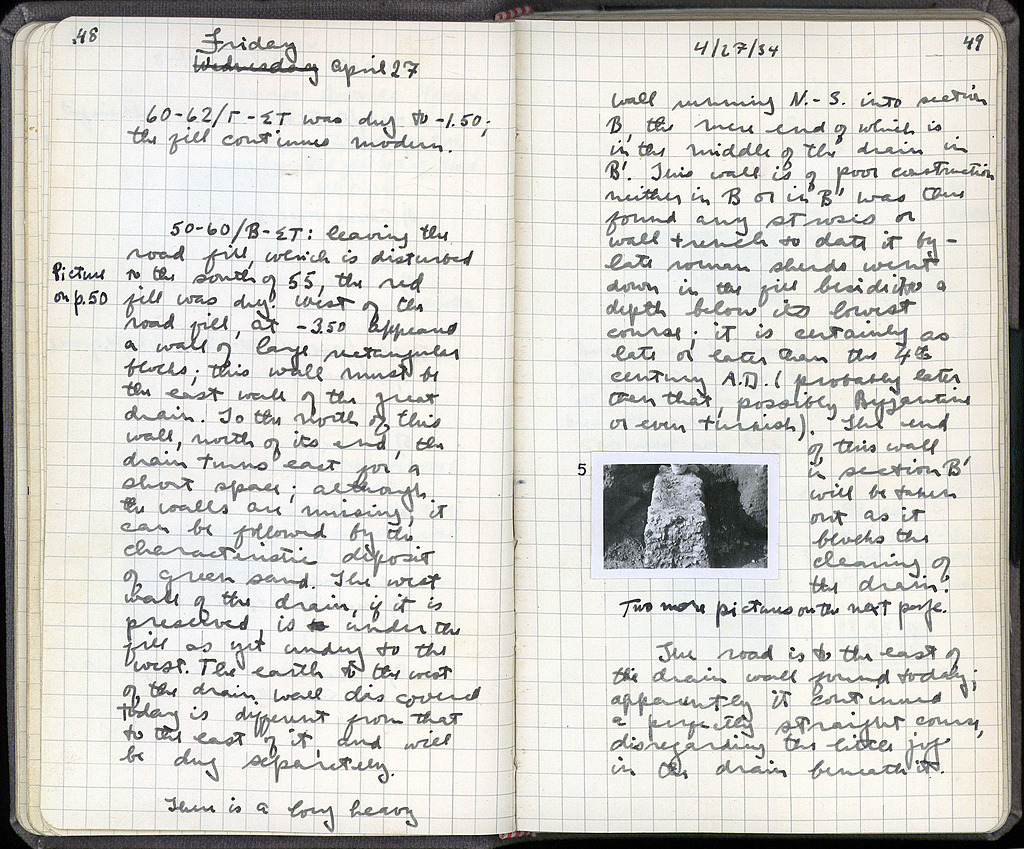 48
Friday
Wednesday April 27
60-62/Γ-ΣΤ was dug to -1.50;
the fill continues modern.
50-60/B-ΣΤ: leaving the
road fill, which is disturbed
to the south of 55, the red
fill was dug. West of the
road fill, at -3.50 appears
a wall of large rectangular
blocks; this wall must be
the east wall of the great
drain. To the north of this
wall, north of its end, the
drain turns east for a
short space; although
the walls are missing, it
can be followed by the
characteristic deposit
of green sand. The west
wall of the drain, if it is
preserved, is under the
fill as yet undug to the
west. The earth to the west
of the drain wall discovered
today is different from that
to the east of it, and will
be dug separately.
There is a long heavy
Picture
on p.50
4/27/34
49
wall running N.-S. into section
B, the mere end of which is
in the middle of the drain in
B'. This wall is of poor construction
neither in B or in B' was there
found any stroses or
wall trench to date it by -
late roman sherds went
down in the fill beside it to a
depth below its lowest
course; it is certainly as
late or later than the 4th
century A.D. (probably later
than that, possibly Byzantine
or even turkish). The end
of this wall
in section B'
will be taken
out as it
blocks the
clearing of
the drain.
5
Two more pictures on the next page.
The road is to the east of
the drain wall found today;
apparently it continued
a perfectly straight course,
disregarding the little jog
in the drain beneath it.